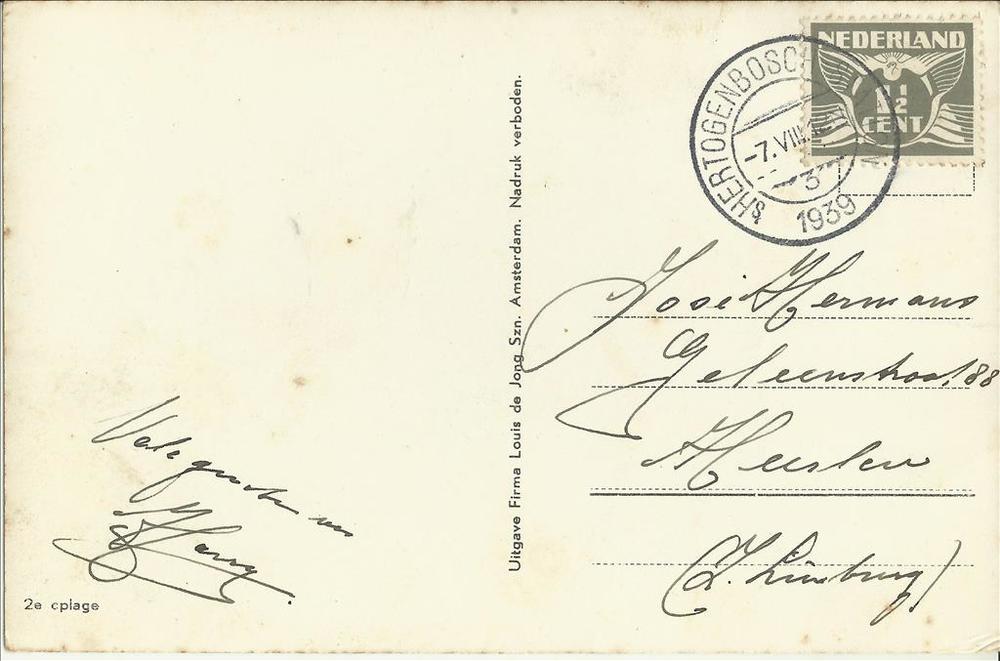 NEDERLAND
1½
CENT
'sHERTOGENBOSCH
-7.VIII
3
1939
Uitgave Firma Louis de Jong Szn. Amsterdam. Nadruk verboden.
José Hermans
Geleenstraat 88
Heerlen
(Z. Limburg)
Vele groeten van
Harry.
2e cplage